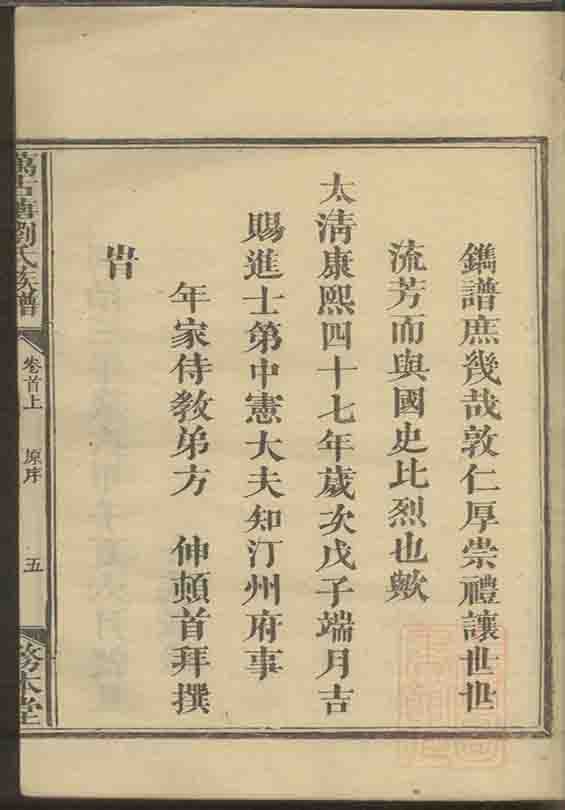 鐫譜庶幾哉敦仁厚崇禮讓世世
流芳而與國史比烈也歟
太清康熙四十七年歲次戊子端月吉
旹
賜進士第中憲大夫知汀州府事
年家侍教弟方　伸頓首拜撰
劉氏族譜
卷首上
原序
五
務本堂